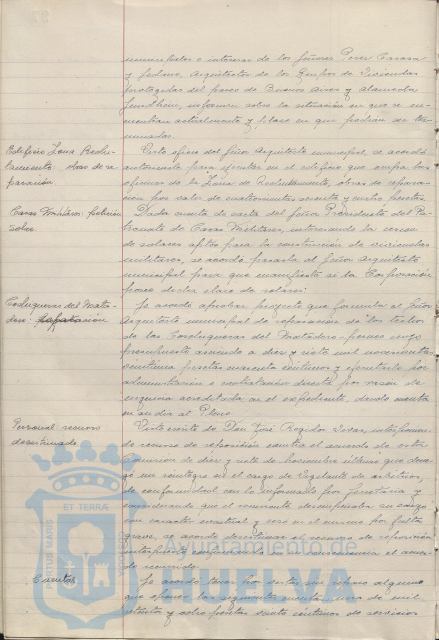 intereses de los Señores Perez Carasa
y , Arquitectos de los Grupos de Viviendas
protegidas del paseo de Buenos Aires y Alameda
Sundheim, informen sobre la situación en que se en-
cuentran actualmente y plazo en que podrán ser ter-
minadas.
Edificio Zona Reclu-
tamiento obras de re-
paración
Visto oficio del Señor Arquitecto municipal, se acordó
autorizarle para ejecutar en el edificio que ocupa las
oficinas de la Zona de Reclutamiento, obras de repara-
ción por valor de cuatrocientas sesenta y ocho pesetas.
Casas Militares: petición
solar
Dada cuenta de carta del Señor Presidente del Pa-
tronato de Casas Militares, interesando la cesión
de solares aptos para la construcción de viviendas
militares, se acordó pasarla al Señor Arquitecto
municipal para que manifieste si la Corporación
posee dicha clase de solares.
del Mata-
dero: reparación
Se acordó aprobar proyecto que formula el Señor
Arquitecto municipal de reparación de los techos
de las del Matadero, cuyo
presupuesto asciende a diez y siete mil novecientas
pesetas céntimos y ejecutarlo por
administración o contratación directa por razón de
urgencia acreditada en el expediente, dando cuenta
en su día al Pleno.
Personal recurso
desestimado
Visto escrito de Don José interponien-
do recurso de reposición contra el acuerdo de esta
Comisión de diez y siete de noviembre último que dene-
gó su reintegro en el cargo de Vigilante de arbitrios,
de conformidad con lo informado por Secretaría y
considerando que el recurrente desempeñaba su cargo
con carácter eventual y cesó en el mismo por falta
grave, se acordó desestimar el recurso de reposición
interpuesto el acuer-
do recurrido.
Cuentas
Se acordó tener por vistas sin reparo alguno
que ofrecer las siguientes cuentas: una de mil
setenta y ocho pesetas céntimos de servicios
PORTUS MARIS
ET TERRÆ
CUSTODIA
Ayuntamiento de
HUELVA